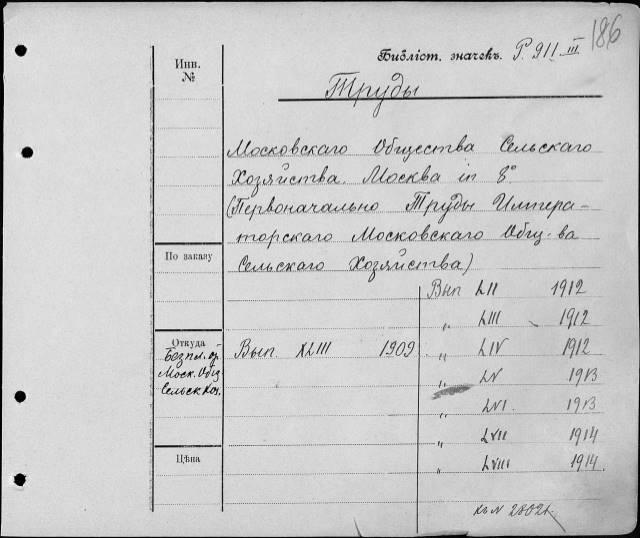 186
Библіот. значекъ. P. 911 III
Инв.
№
Труды
Московскаго Общества Сельскаго
Хозяйства. Москва in 8°
(Первоначально Труды Импера-
торскаго Московскаго Общ-ва
Сельскаго Хозяйства)
По заказу
Вып LII 1912
„ LIII 1912
Откуда
Безпл. от
Моск. Общ
Сельск Хоз.
Вып. XLIII 1909
„ LIV 1912
„ LV 1913
„ LVI. 1913
„ LVII 1914
Цѣна
„ LVIII 1914.
къ N 28021.